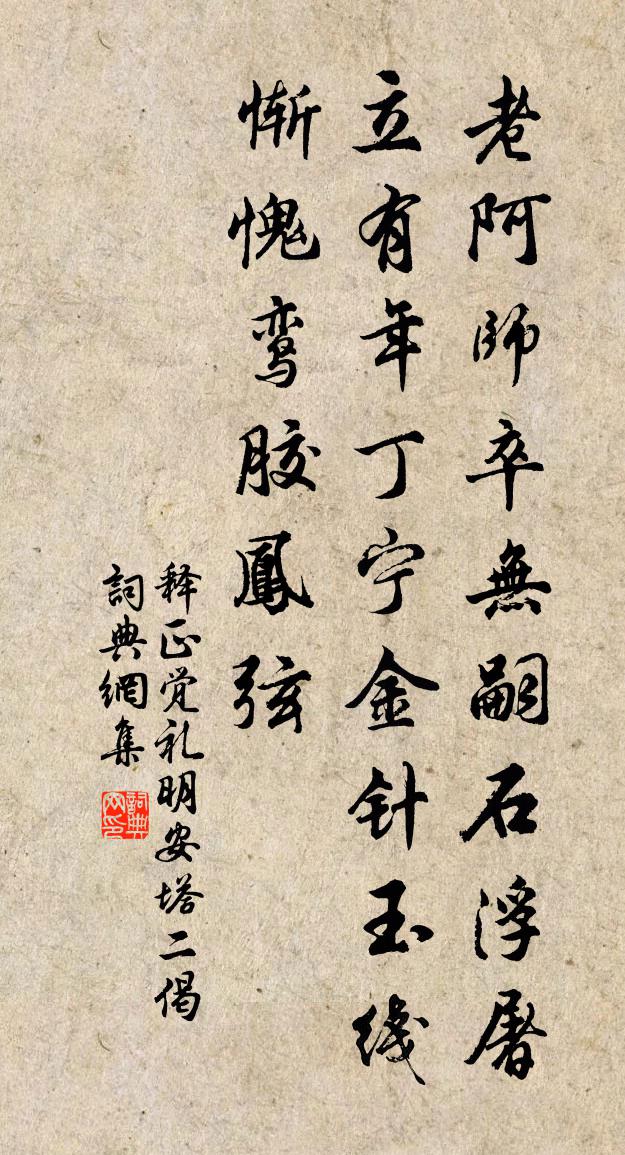 老阿師卒無嗣石浮屠
立有年丁宁金针玉线
惭愧鸾胶鳳弦
释正觉礼明安塔二偈
詞典網集
詞典网印